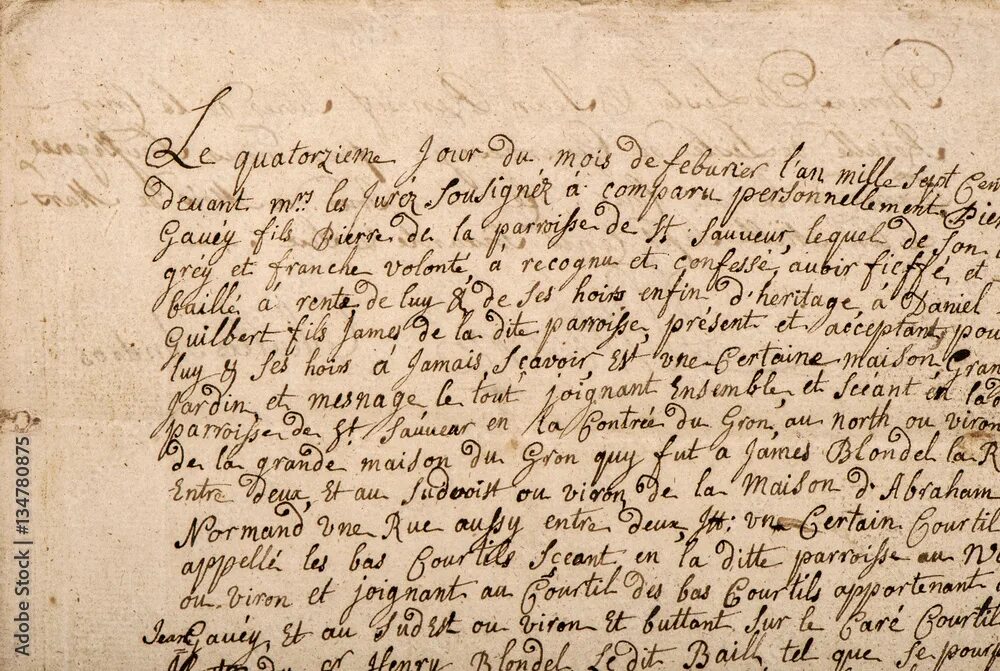 Le quatorzieme Jour du mois de feburier l'an mille sept Cen
devant mrs les Juréz Sousignéz à comparu personnellement Pier
Gavéy fils Pierre de la parroisse de St Sauveur, lequel de Son
gréy et franche volonté, à recognu et confessé, auoir fieffé, et
baillé à rente de luy & de Ses hoirs enfin d'heritage, à Daniel
Guilbert fils James de la dite parroisse, présent et acceptant pou
luy & Ses hoirs à Jamais, Sçavoir, Est vne Certaine maison, Gran
Jardin, et mesnage le tout joignant Ensemble, et Sceant en lad
parroisse de St Sauveur en la Contrée du Gron, au north ou viron
de la grande maison du Gron quy fut à James Blondel la R
Entre deux, Et au Sudvoist ou viron de la Maison d'Abraham
Normand, vne Rue aussy entre deux, It: vn Certain Courtil
appellé les bas Courtils Sçeant en la ditte parroisse au
ou viron et joignant au Courtil des bas Courtils appartenant
Jean Gavéy, Et au Sud Est ou viron et buttant Sur le Caré Courtil
du Sr Henry Blondel Ledit Bail, tel que Se pours
Adobe Stock | #134780875